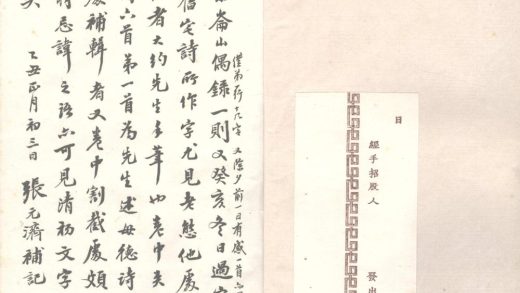 日
經手招股人
發出
十九字又除夕前一日有感一首
崙山偶錄一則又癸亥冬日過
舊宅詩所作字尤見老態他處
者大約先生手筆也卷中
六首第一首為先生述母德詩
處補輯者又卷中割截處頗
忌諱之語亦可見清初文字
乙丑正月初三日 張元濟補記